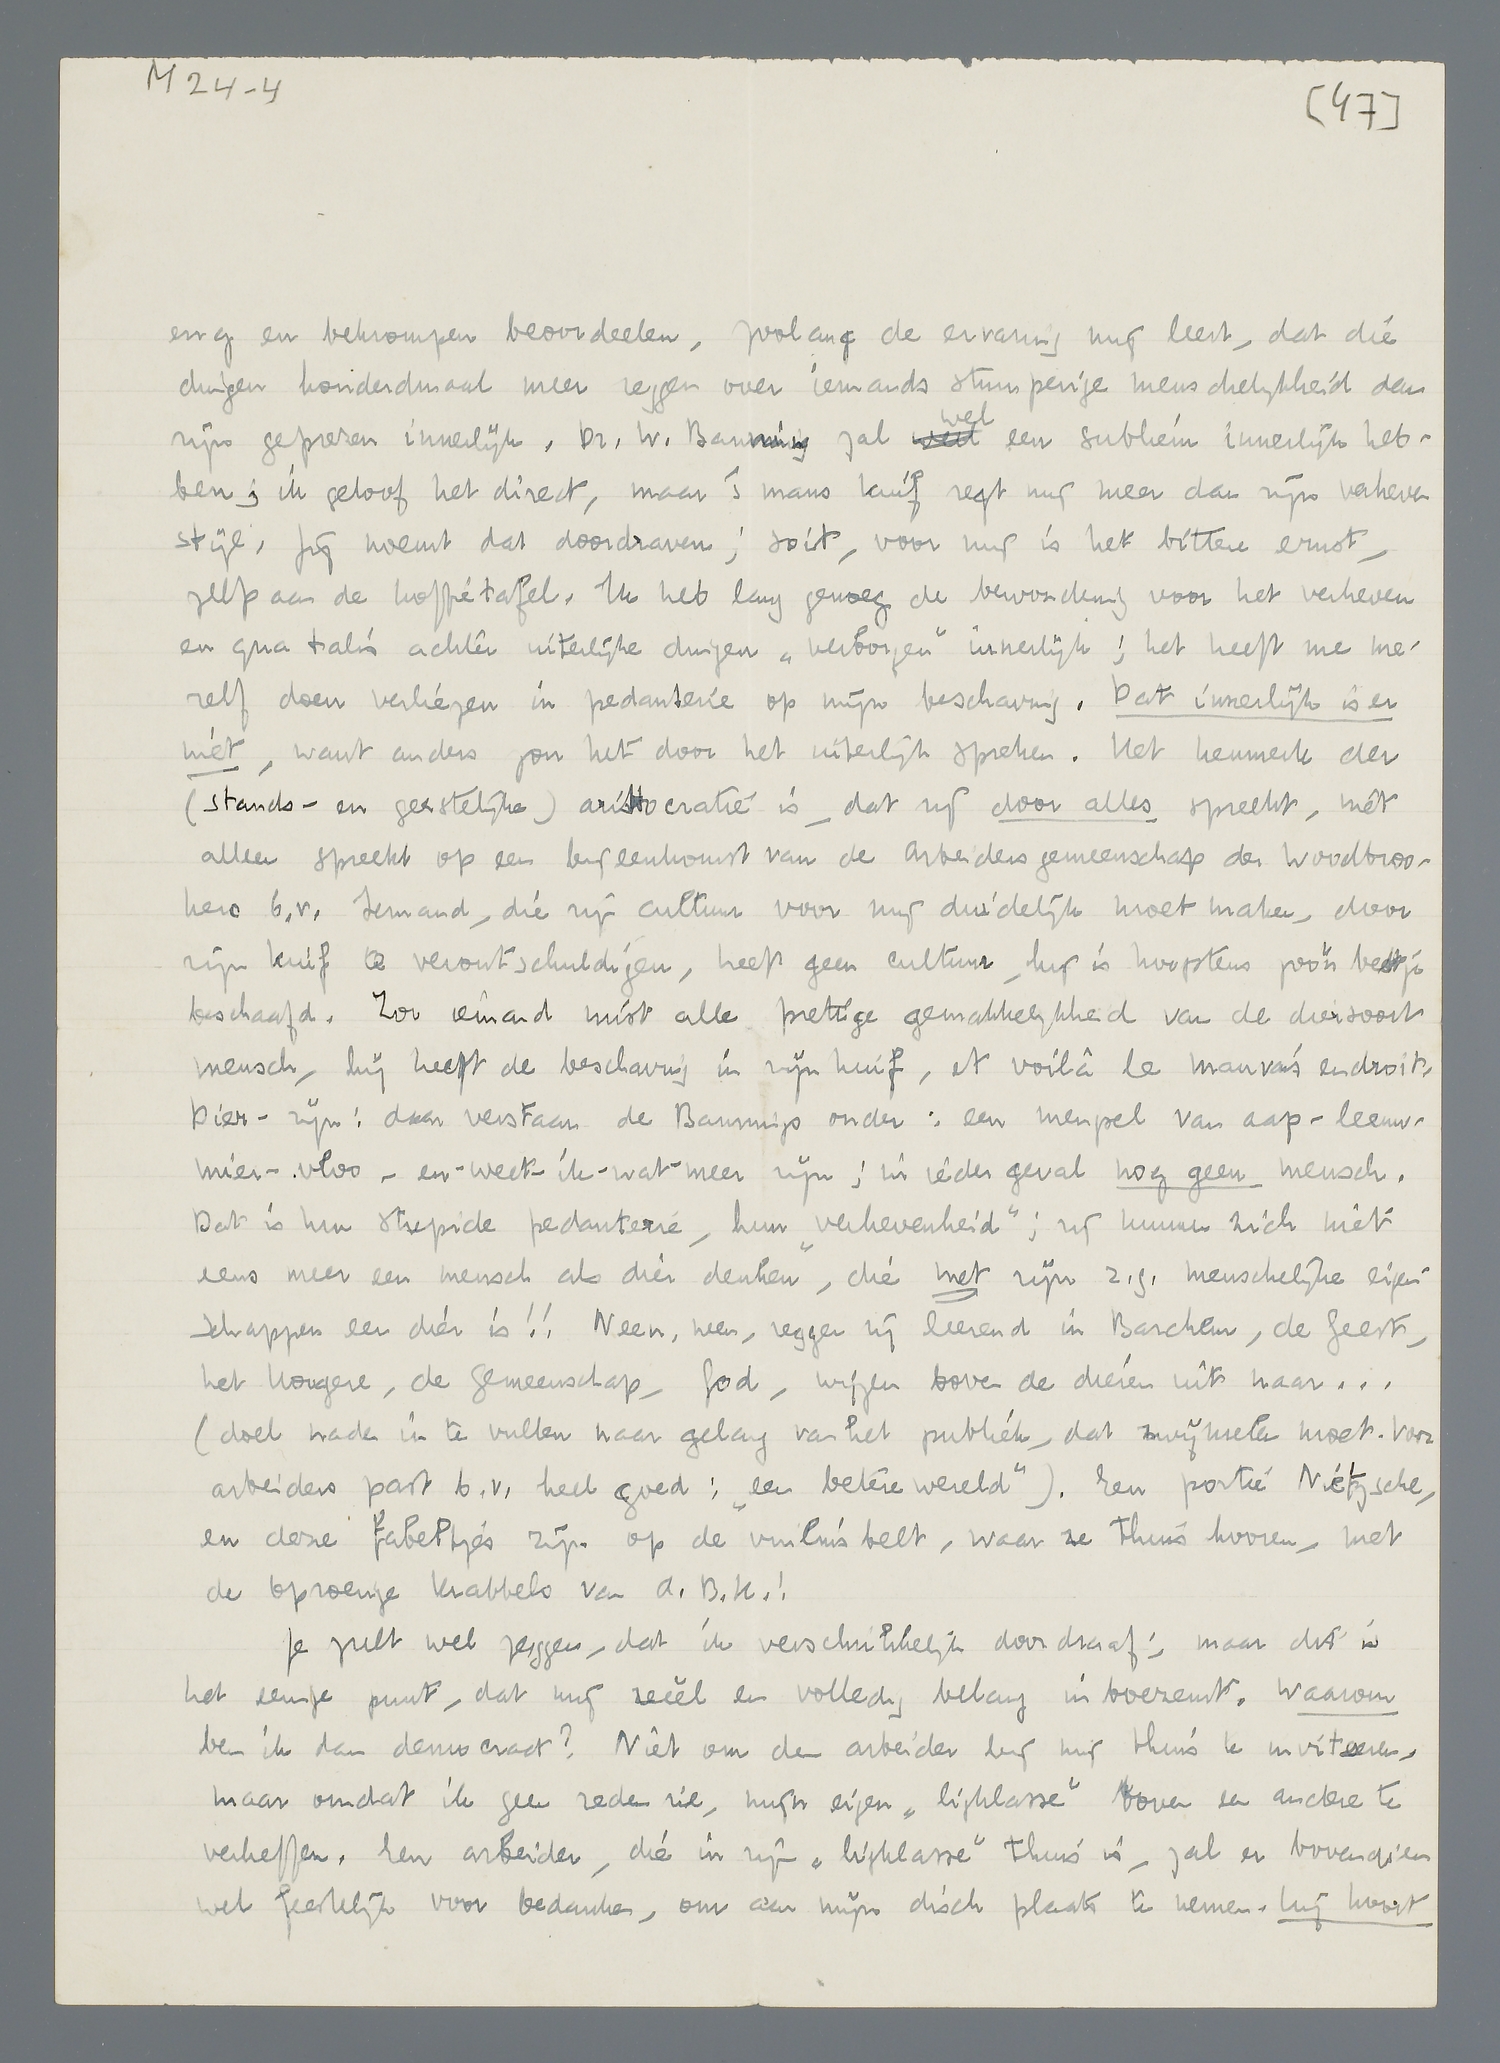 M 24-4
[47]
eng en bekrompen beoordeelen, zoolang de ervaring mij leert, dat die
dingen honderdmaal meer zeggen over iemands stumperige menschelijkheid dan
zijn geprezen innerlijk. Dr. W. Banning zal wel een subliem innerlijk heb-
ben; ik geloof het direct, maar 's mans kuif zegt mij meer dan zijn verheven
stijl. Jij noemt dat doordraven; soit, voor mij is het bittere ernst,
zelfs aan de koffietafel. Ik heb lang genoeg de bewondering voor het verheven
en qua talis achter uiterlijke dingen „verborgen" innerlijk; het heeft me me-
zelf doen verliezen in pedanterie op mijn beschaving. Dat innerlijk is er
niet, want anders zou het door het uiterlijk spreken. Het kenmerk der
(stands- en geestelijke) aristocratie is, dat zij door alles spreekt, niet
alleen spreekt op een bijeenkomst van de Arbeidersgemeenschap der Woodbroo-
kers b.v. Iemand, die zijn cultuur voor mij duidelijk moet maken, door
zijn kuif te verontschuldigen, heeft geen cultuur, hij is hoogstens zoo'n beetje
beschaafd. Zoo iemand mist alle prettige gemakkelijkheid van de diersoort
mensch, hij heeft de beschaving in zijn kuif, et voilà le mauvais endroit.
Dier-zijn: daar verstaan de Bannings onder: een mengsel van aap-leeuw-
mier-vloo-en-weet-ik-wat-meer zijn; in ieder geval nog geen mensch.
Dat is hun stupide pedanterie, hun „verhevenheid"; zij kunnen zich niet
eens meer een mensch als dier „denken", die met zijn z.g. menschelijke eigen-
schappen een dier is!! Neen, neen, zeggen zij leerend in Barchem, de Geest,
het Hoogere, de Gemeenschap, God, wijzen boven de dieren uit naar...
(doel nader in te vullen naar gelang van het publiek, dat zwijmelen moet. Voor
arbeiders past b.v. heel goed: „een betere wereld"). Een portie Nietzsche,
en deze fabeltjes zijn op de vuilnisbelt, waar ze thuis hooren, met
de oproerige krabbels van d. B.K.!
Je zult wel zeggen, dat ik verschrikkelijk doordraaf; maar dit is
het eenige punt, dat mij reëel en volledig belang inboezemt. Waarom
ben ik dan democraat? Niet om den arbeider bij mij thuis te inviteeren,
maar omdat ik geen reden zie, mijn eigen „ligklasse" boven een andere te
verheffen. Een arbeider, die in zijn „ligklasse" thuis is, zal er bovendien
wel feestelijk voor bedanken, om aan mijn disch plaats te nemen. Hij hoort